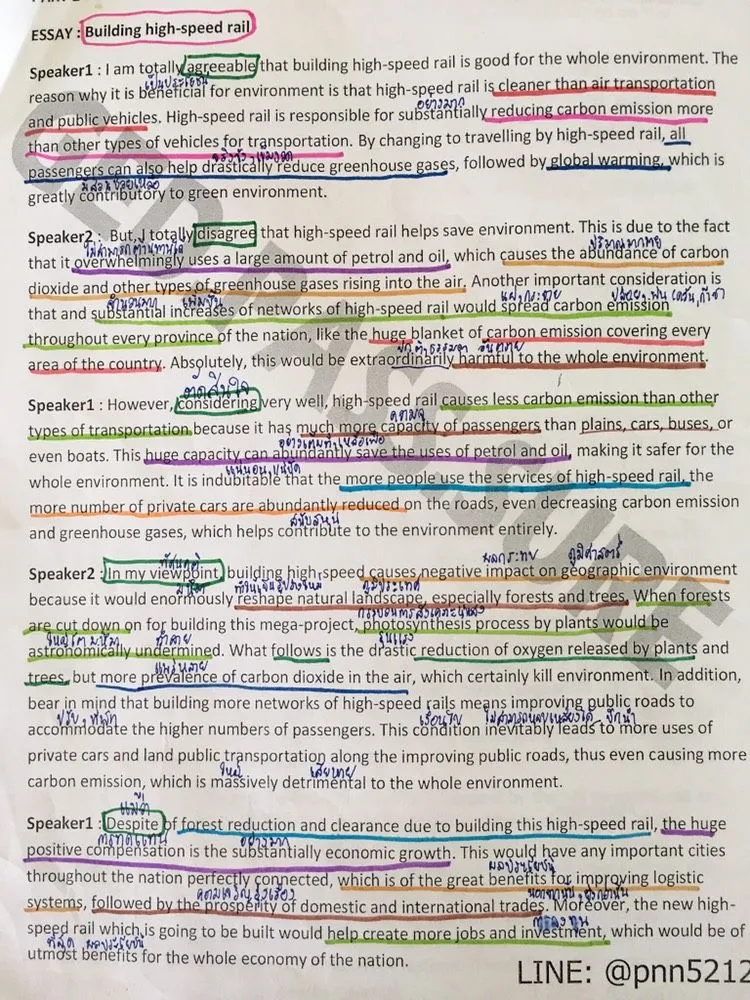 ESSAY : Building high-speed rail
Speaker1 : I am totally agreeable that building high-speed rail is good for the whole environment. The
เป็นประโยชน์
reason why it is beneficial for environment is that high-speed rail is cleaner than air transportation
อย่างมาก
and public vehicles. High-speed rail is responsible for substantially reducing carbon emission more
than other types of vehicles for transportation. By changing to travelling by high-speed rail, all
passengers can also help drastically reduce greenhouse gases, followed by global warming, which is
มีส่วนช่วยเหลือ
greatly contributory to green environment.
Speaker2 : But, I totally disagree that high-speed rail helps save environment. This is due to the fact
ไม่สามารถต้านทานได้
that it overwhelmingly uses a large amount of petrol and oil, which causes the abundance of carbon
dioxide and other types of greenhouse gases rising into the air. Another important consideration is
จำนวนมาก เพิ่มขึ้น แผ่กระจาย
that and substantial increases of networks of high-speed rail would spread carbon emission
throughout every province of the nation, like the huge blanket of carbon emission covering every
area of the country. Absolutely, this would be extraordinarily harmful to the whole environment.
ตัดสินใจ
Speaker1 : However, considering very well, high-speed rail causes less carbon emission than other
ความจุ
types of transportation because it has much more capacity of passengers than plains, cars, buses, or
even boats. This huge capacity can abundantly save the uses of petrol and oil, making it safer for the
แน่นอน
whole environment. It is indubitable that the more people use the services of high-speed rail, the
more number of private cars are abundantly reduced on the roads, even decreasing carbon emission
สนับสนุน
and greenhouse gases, which helps contribute to the environment entirely.
ทัศนคติ ผลกระทบ ภูมิศาสตร์
Speaker2 : In my viewpoint, building high speed causes negative impact on geographic environment
ภูมิประเทศ
because it would enormously reshape natural landscape, especially forests and trees. When forests
กระบวนการสังเคราะห์แสง
are cut down on for building this mega-project, photosynthesis process by plants would be
ทำลาย รุนแรง
astronomically undermined. What follows is the drastic reduction of oxygen released by plants and
แพร่หลาย
trees, but more prevalence of carbon dioxide in the air, which certainly kill environment. In addition,
bear in mind that building more networks of high-speed rails means improving public roads to
เงื่อนไข ไม่สามารถหลบเลี่ยงได้ ชักนำ
accommodate the higher numbers of passengers. This condition inevitably leads to more uses of
private cars and land public transportation along the improving public roads, thus even causing more
ใหญ่ เสียหาย
carbon emission, which is massively detrimental to the whole environment.
แม้ว่า
Speaker1 : Despite of forest reduction and clearance due to building this high-speed rail, the huge
การทดแทน อย่างมาก
positive compensation is the substantially economic growth. This would have any important cities
ผลประโยชน์
throughout the nation perfectly connected, which is of the great benefits for improving logistic
ความเจริญรุ่งเรือง
systems, followed by the prosperity of domestic and international trades. Moreover, the new high-
การลงทุน
speed rail which is going to be built would help create more jobs and investment, which would be of
ที่สุด ผลประโยชน์
utmost benefits for the whole economy of the nation.
LINE: @pnn5212
GED PASS SURE